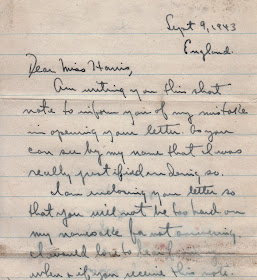 Sept 9, 1943
England.
Dear Miss Harris,
Am writing you this short
note to inform you of my mistake
in opening your letter. As you
can see by my name that I was
really justified in doing so.
I am inclosing your letter so
that you will not be too hard on
my namesake for not answering.
I would love to hear from
when & if you receive this note.